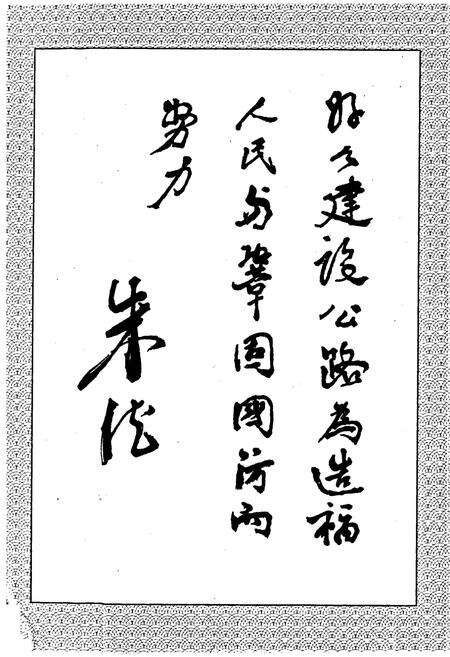 好々建設公路為造福
人民与鞏固國防而
努力
朱德